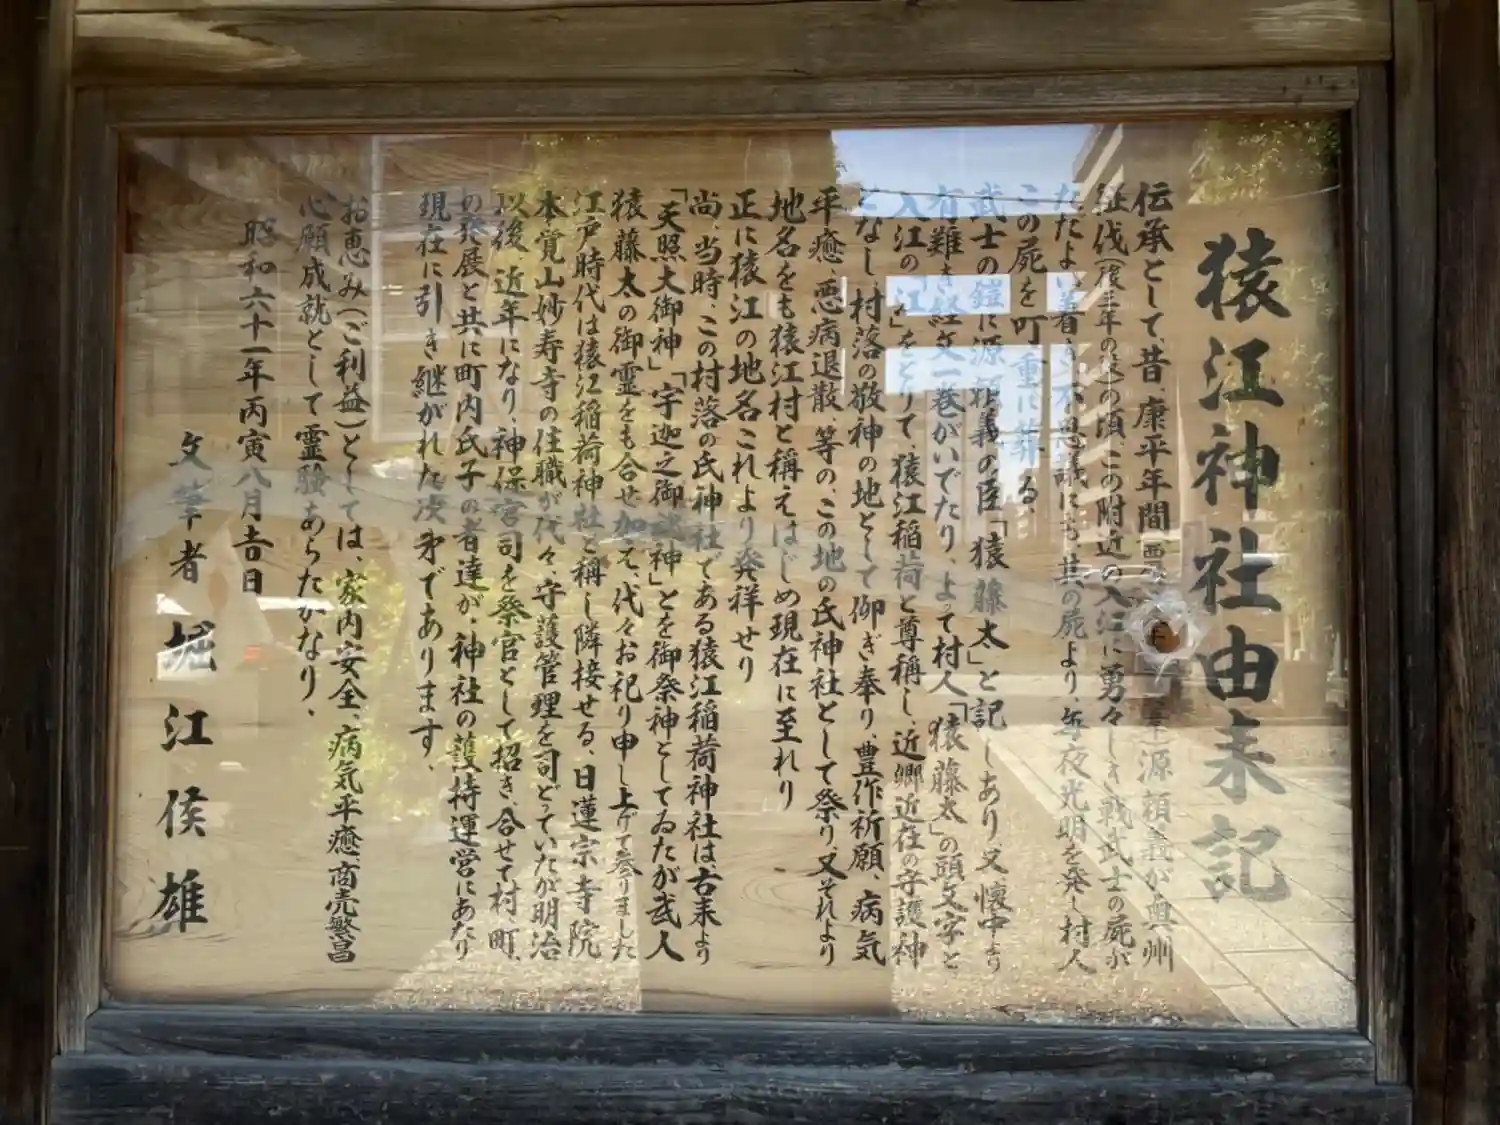 猿江神社由来記
伝承として、昔、康平年間 源頼義が奥州
征伐(後三年の役)の頃、この附近の入江に勇々しき戦武士の屍が
たたよい着き、不思議にも、其の屍より、毎夜光明を発し村人
この屍を叮重に葬る、
武士の鎧に源頼義の臣「猿藤太」と記しあり、又懐中より
有難き経文一巻がいでたり、よって村人「猿藤太」の頭文字と
入江の「江」をとりて、猿江稲荷と尊稱し、近郷近在の守護神
となし、村落の敬神の地として仰ぎ奉り、豊作祈願、病気
平癒、悪病退散等の、この地の氏神社として祭り、又それより
地名をも猿江村と稱えはじめ現在に至れり
正に猿江の地名これより発祥せり
尚、当時、この村落の氏神社である猿江稲荷神社は、古来より
「天照大御神」「宇迦之御魂神」とを御祭神としてゐたが武人
猿藤太の御霊をも合せ加えて、代々お祀り申し上げて参りました
江戸時代は猿江稲荷神社と稱し隣接せる、日蓮宗寺院
本覚山妙寿寺の住職が代々、守護管理を司どっていたが明治
以後、近年になり、神保宮司を祭官として招き、合せて村町、
の発展と共に町内氏子の者達が、神社の護持運営にあたり
現在に引き継がれた次第であります、
お恵み(ご利益)としては、家内安全、病気平癒、商売繁昌
心願成就として霊験あらたかなり、
昭和六十一年丙寅八月吉日
文筆者 堀江侯雄